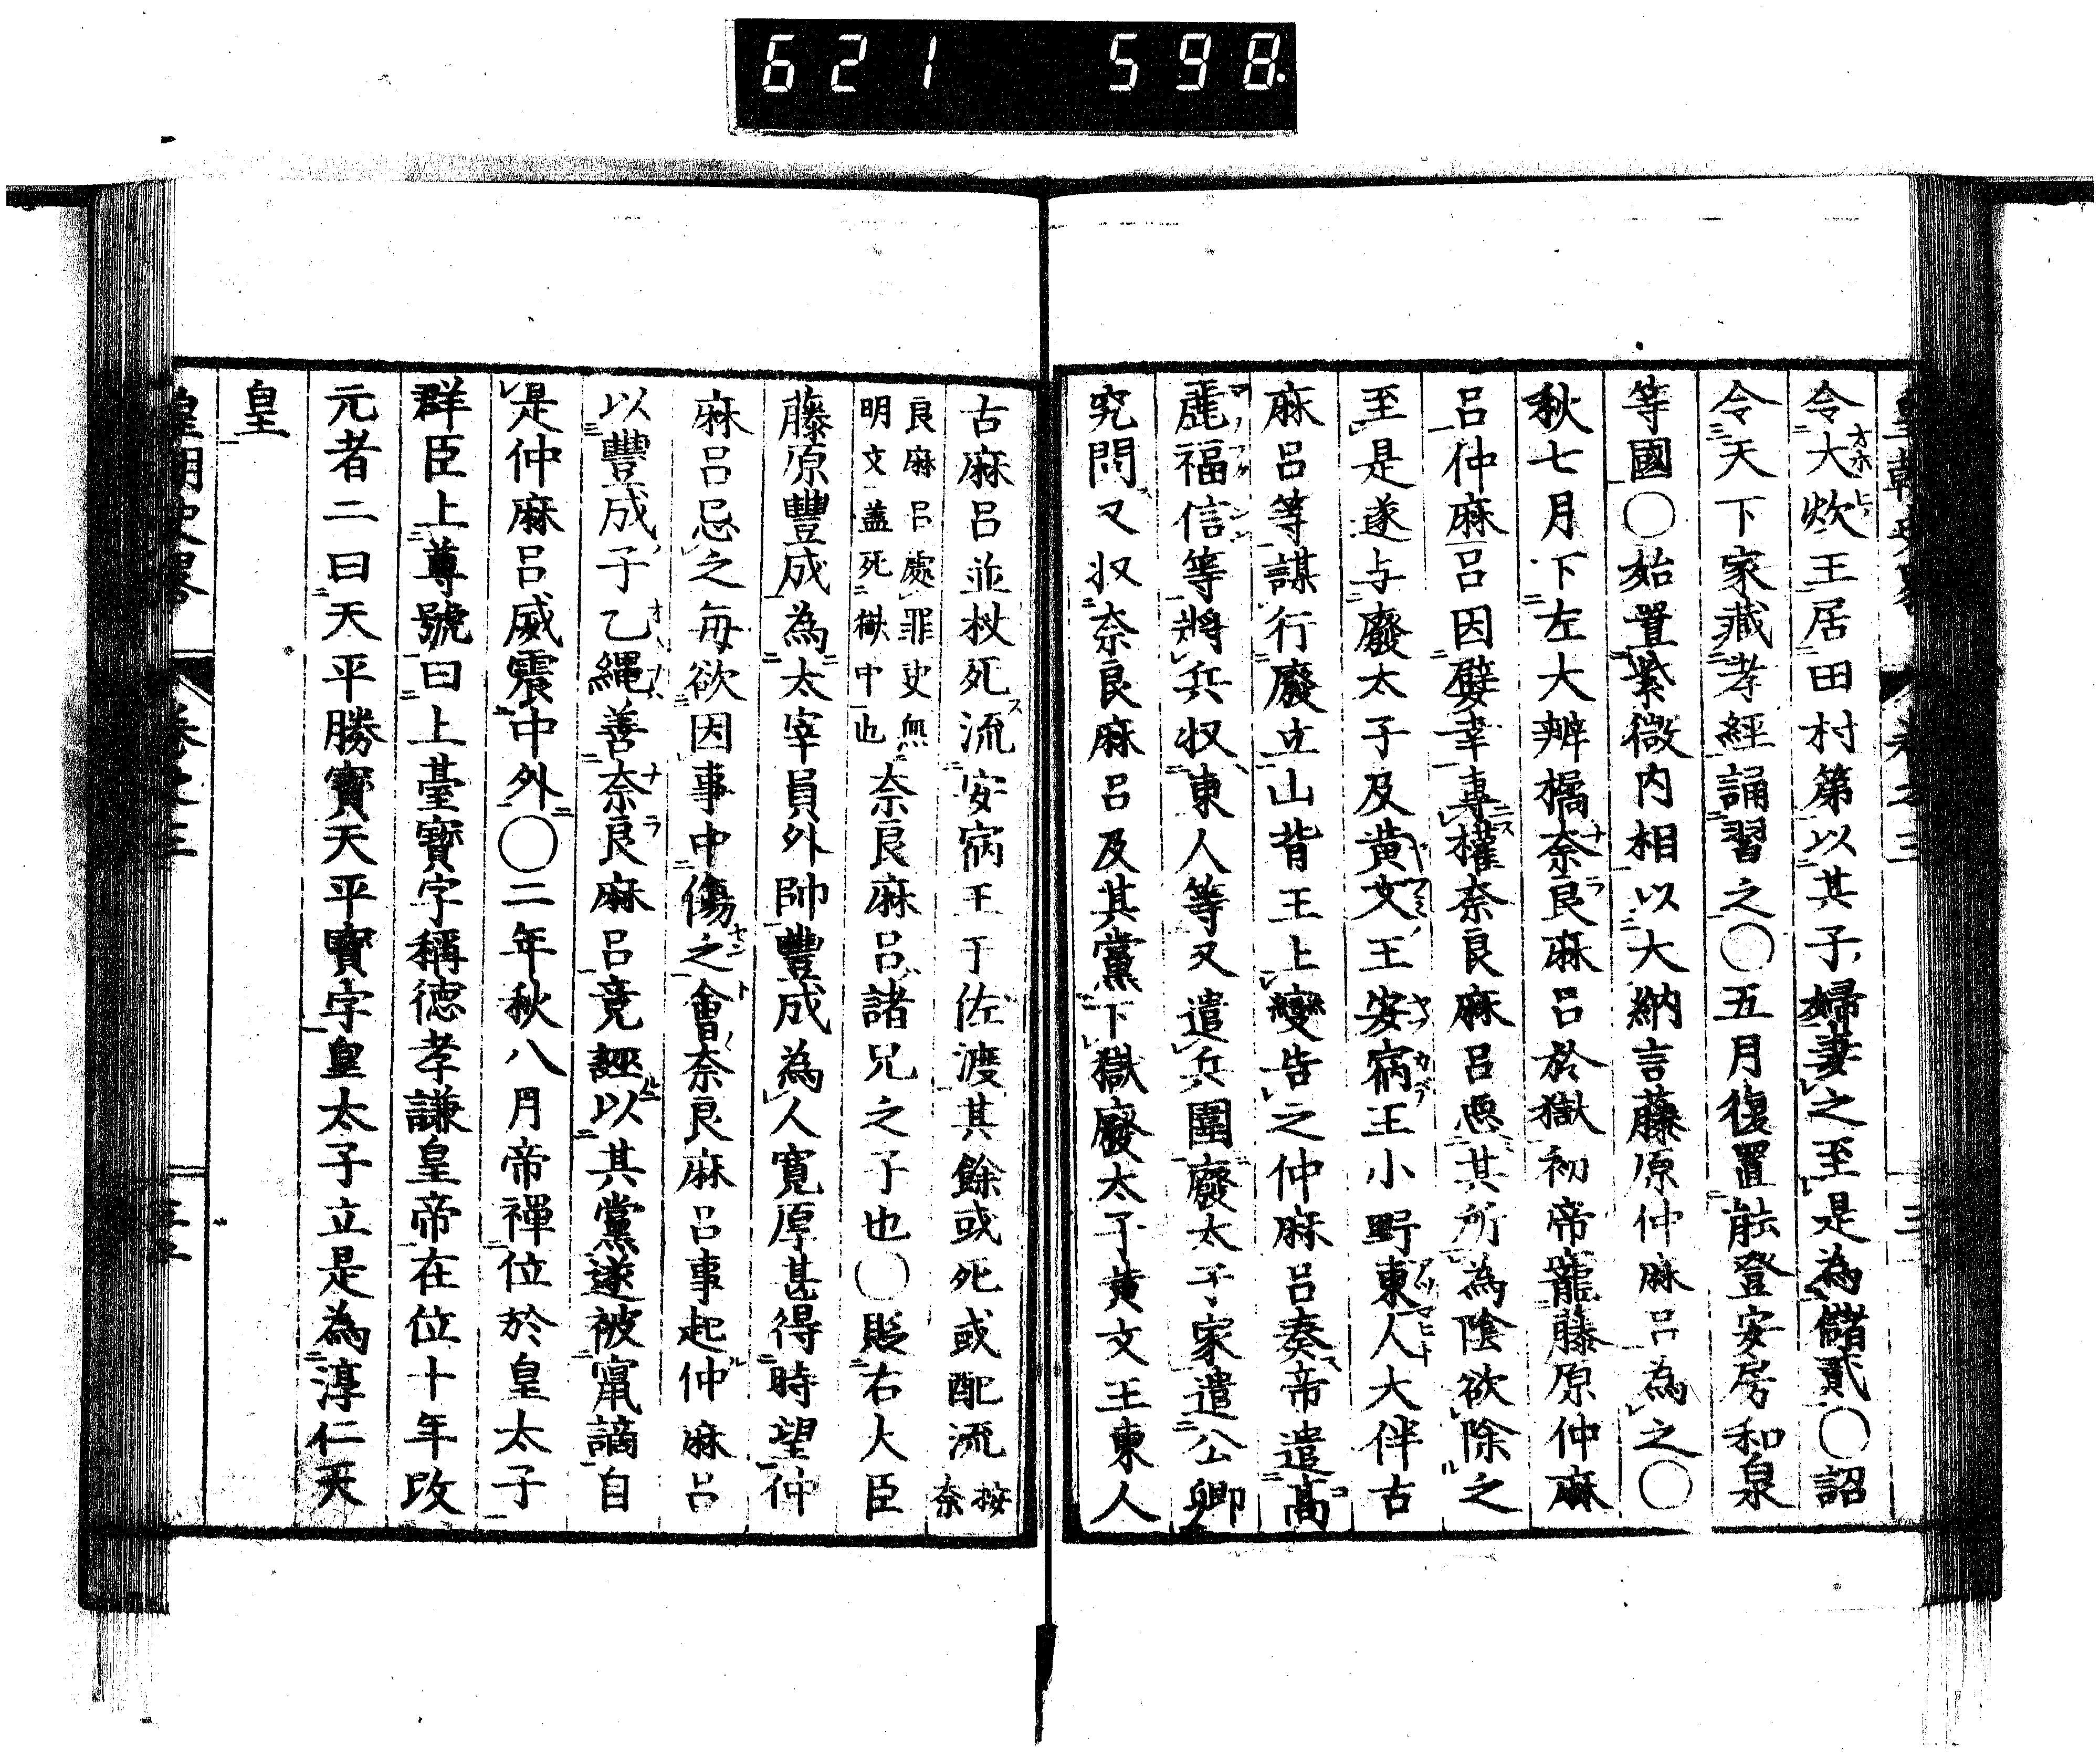 621 598.
令大炊王居田村第以其子婦妻之至是為儲貳〇詔
令天下家藏孝經誦習之〇五月復置能登安房和泉
等國〇始置紫微內相以大納言藤原仲麻呂為之〇
秋七月下左大辨橘奈良麻呂於獄初帝寵藤原仲麻
呂仲麻呂因嬖幸專權奈良麻呂惡其所為陰欲除之
至是遂与廢太子及黃文王安宿王小野東人大伴古
麻呂等謀行廢立山背王上變告之仲麻呂奏帝遣高
麗福信等將兵収東人等又遣兵圍廢太子家遣公卿
究問又収奈良麻呂及其黨下獄廢太子黃文王東人
古麻呂並杖死流安宿王于佐渡其餘或死或配流按奈
良麻呂處罪史無明文蓋死獄中也奈良麻呂諸兄之子也〇貶右大臣
藤原豐成為太宰員外帥豐成為人寬厚甚得時望仲
麻呂忌之每欲因事中傷之會奈良麻呂事起仲麻呂
以豐成子乙繩善奈良麻呂竟誣以其黨遂被竄謫自
是仲麻呂威震中外〇二年秋八月帝禪位於皇太子
群臣上尊號曰上臺寶字稱德孝謙皇帝在位十年改
元者二曰天平勝寶天平寶字皇太子立是為淳仁天
皇